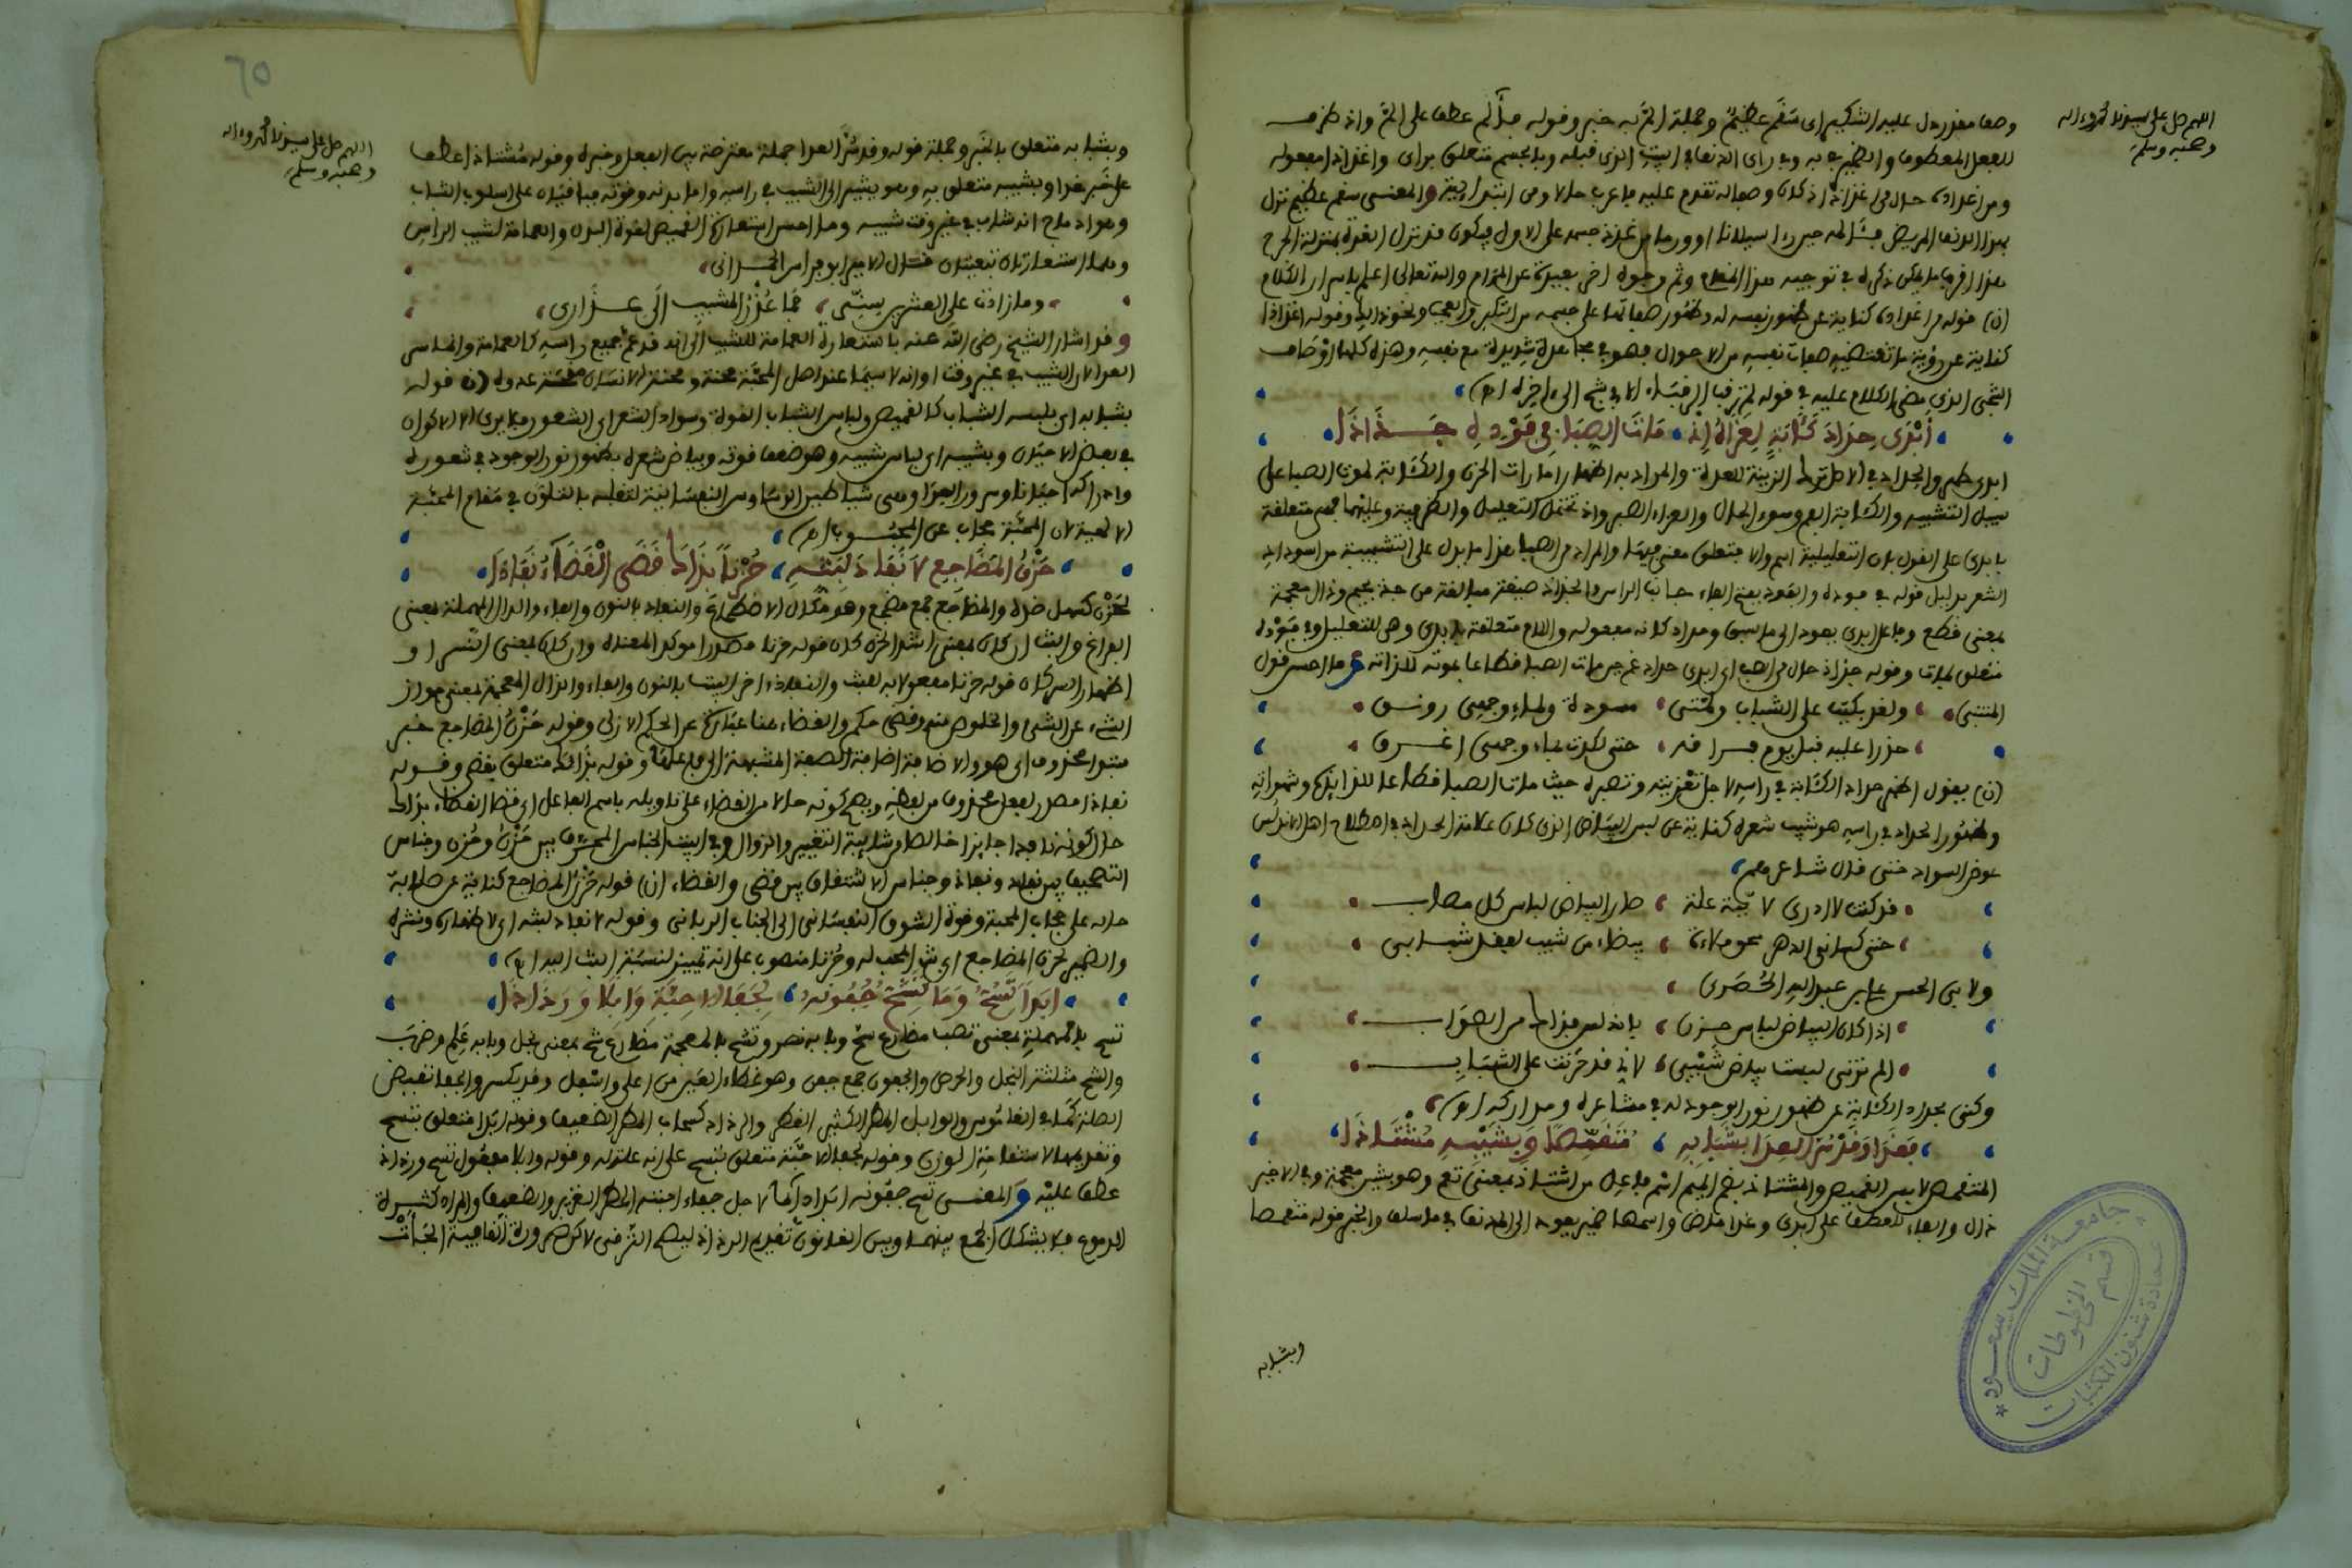 اللهم صل على سيدنا محمد وءاله
وصحبه وسلم
وصف مقدر دل عليه التنكير اي سقم عظيم وجملة الم به خبر وقوله فألم عطف على الم واذ ظرف
للفعل المعطوف والضمير في به وفي راى الدنف في البيت الذي قبله وبالجسم متعلق براى واغذاذا مفعوله
ومن اغذاذه حال من اغذاذا اذ كان وصفا له تقدم عليه فاعرب حالا ومن ابتدائية والمعنى سقم عظيم نزل
بهذا الدنف المريض فتألم حين راى سيلانا او ورما من غذة جسمه على الاول فيكون قد نزل الغدة بمنزلة الجرح
هذا اقرب ما يمكن ذكره في توجيه هذا المقام وثم وجوه اخر بعيدة عن المرام والله تعالى اعلم باسرار الكلام
(ن) قوله من اغذاذه كناية عن ظهور نفسه له وظهور صفاتها على جسمه من التكبر والعجب ونحو ذلك وقوله اغذاذا
كناية عن رؤية ما تقتضيه صفات نفسه من الاحوال فهو في مجاهدة شديدة مع نفسه وهذه كلها اوصاف
الشجي الذي مضى الكلام عليه في قوله لم ترقب الرقباء الا في شج الى ءاخره اه)
أبْدى حِدادَ كَآبَةٍ لِعَزاهُ إذْ مَاتَ الصِبَا فِي فَوْدِهِ جَذّاذَا
ابدى ظهر والحداد في الاصل ترك الزينة للعدة والمراد به اظهار امارات الحزن والكآبة لموت الصبا على
سبيل التشبيه والكآبة الغم وسوء الحال والعزاء الصبر واذ تحتمل التعليل والظرفية وعليهما فهي متعلقة
بابدى على القول بان التعليلية اسم والا فتعلق معنى فيها والمراد من الصبا هنا ما يدل على الشبيبة من اسوداد
الشعر بدليل قوله في فوده والفود بفتح الفاء جانب الراس والجذاذ صيغة مبالغة من جذ بجيم وذال معجمة
بمعنى قطع وفاعل ابدى يعود الى ما سبق وحداد كآبة مفعوله واللام متعلقة بابدى وهي للتعليل وفي فوده
متعلق بمات وقوله جذاذ حال من الصبا اي ابدى حداد غم حين مات الصبا قطاعا بموته للذاته وما احسن قول
المتنبي ولقد بكيت على الشباب ولمتي مسودة ولماء وجهي رونق
حذرا عليه قبل يوم فراقه حتى لكدت بماء وجهي اغرق
(ن) يقول اظهر حداد الكآبة في راسه لاجل تعزيته وتصبره حيث مات الصبا قطاعا للذايذه وشهواته
وظهور الحداد في راسه هو شيب شعره كناية عن لبس البياض الذي كان علامة الحداد في اصطلاح اهل الاندلس
عوض السواد حتى قال شاعرهم
قد كنت لا ادري لاية علة صار البياض لباس كل مصاب
حتى كساني الدهر سحق ملاءة بيضاء من شيب لفقد شبابي
ولابي الحسن علي بن عبد الله الحصري
اذا كان البياض لباس حزن باندلس فذاك من الصواب
الم ترني لبست بياض شيبي لاني قد حزنت على الشباب
وكنى بحداد الكآبة عن ظهور نور الوجود له في مشاعره ومداركه اه)
فَغَدَا وَقَدْ سُرَّ العِدَا بِشَبابِهِ مُتَقَمِّصًا وَبِشَيْبِهِ مُشْتَاذَا
المتقمص لابس القميص والمشتاذ بضم الميم اسم فاعل من اشتاذ بمعنى تعمم وهو بشين معجمة وفي الاخير
ذال والفاء للعطف على ابدى وغدا ماض واسمها ضمير يعود الى الدنف في ما سلف والخبر قوله متقمصا
وبشبابه
جامعة الملك سعود
قسم المخطوطات
عمادة شئون المكتبات
٦٥
اللهم صل على سيدنا محمد وءاله
وصحبه وسلم
وبشبابه متعلق بالخبر وجملة قوله وقد سر العدا جملة معترضة بين الفعل وخبره وقوله مشتاذا عطف
على خبر غدا وبشيبه متعلق به وهو يشير الى الشيب في راسه واما بدنه وقوته فباقيان على اسلوب الشباب
ومراده مدح انه شاب في غير وقت شيبه وما احسن استعارة القميص لقوة البدن والعمامة لشيب الراس
وهما استعارتان تبعيتان قال الامير ابو فراس الحمداني
وما زادت على العشرين سني فما عذر المشيب الى عذاري
وقد اشار الشيخ رضي الله عنه باستعارة العمامة للشيب الى انه قد عم جميع راسه كالعمامة وانما سر
العدا لان الشيب في غير وقت اوانه لا سيما عند اهل المحبة محنة ومحنة الانسان مسرة عدوه (ن) قوله
بشبابه اي بلبسه الشباب كالقميص ولباس الشباب القوة وسواد الشعر اي الشعور فلا يرى الا الاكوان
في بعض الاحيان وبشيبه اي لباس شيبه وهو ضعف قوته وبياض شعره بظهور نور الوجود في شعوره
وادراكه احيانا وسرور العدا وهي شياطين الوساوس النفسانية لتقلبه بالتلون في مقام المحبة
الالهية لان المحبة حجاب عن المحبوب اه)
حَزْنُ المَضَاجِعِ لاَ نَفَادَ لِبَثِّهِ حُزْناً بِذَاكَ قَضَى الْقَضَاءُ نَفَاذَا
الحزن كسهل ضده والمضاجع جمع مضجع وهو مكان الاضطجاع والنفاد بالنون والفاء والدال المهملة بمعنى
الفراغ والبث ان كان بمعنى اشد الحزن كان قوله حزنا مصدرا موكدا لمعناه وان كان بمعنى النشر او
اظهار السر كان قوله حزنا مفعولا به لبث والنفاذ ءاخر البيت بالنون والفاء والذال المعجمة بمعنى جواز
الشيء عن الشيء والخلوص منه وقضى حكم والقضاء هنا عبارة عن الحكم الازلي وقوله حزن المضاجع خبر
مبتدا محذوف اي هو والاضافة اضافة الصفة المشبهة الى فاعلها وقوله بذاك متعلق بقضى وقوله
نفاذا مصدر لفعل محذوف من لفظه ويصح كونه حالا من القضاء على تاويله باسم الفاعل اي قضا القضاء بذاك
حال كونه نافذا جايزا خالصا من شائبة التغيير والزوال وفي البيت الجناس المحرف بين حزن وحزن وجناس
التصحيف بين نفاد ونفاذ وجناس الاشتقاق بين قضى والقضاء (ن) قوله حزن المضاجع كناية عن صلابة
حاله على حجاب المحبة وقوة الشوق النفساني الى الجناب الرباني وقوله لا نفاد لبثه اي لاظهاره ونشره
والضمير لحزن المضاجع اي بث المحب له وحزنا منصوب على انه تمييز لنسبة البث اليه اه)
اَبَداً تَسُحُّ وَمَا تَشِحُّ جُفُونُهُ لِجَفَا الاَحِبَّةِ وَابِلاً وَرَذَاذَا
تسح بالمهملة بمعنى تصب مضارع سح وبابه نصر وتشح بالمعجمة مضارع شح بمعنى بخل وبابه علم وضرب
والشح مثلثة البخل والحرص والجفون جمع جفن وهو غطاء العين من اعلى واسفل وقد يكسر والجفا نقيض
الصلة كما في القاموس والوابل المطر الكثير القطر والرذاذ كسحاب المطر الضعيف وقوله ابدا متعلق بتسح
وتقديمه لاستقامة الوزن وقوله لجفا الاحبة متعلق بتسح على انه علة له وقوله وابلا مفعول تسح ورذاذ
عطف عليه والمعنى تسح جفونه ابدا دائما لاجل جفاء احبته المطر الغزير والضعيف والمراد كثرة
الدموع فلا يشكل الجمع بينهما وبين القانون تقديم الرذاذ ليصح الترقي لاكن ضرورة القافية الجأت